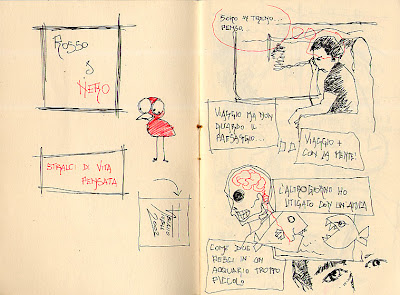 ROSSO
&
NERO
STRALCI DI VITA
PENSATA
SONO IN TRENO...
PENSO...
VIAGGIO MA NON
GUARDO IL
PAESAGGIO...
VIAGGIO +
CON LA MENTE!
L'ALTRO GIORNO HO
LITIGATO CON UN'AMICA
COME DUE
PESCI IN UN
ACQUARIO TROPPO
PICCOLO